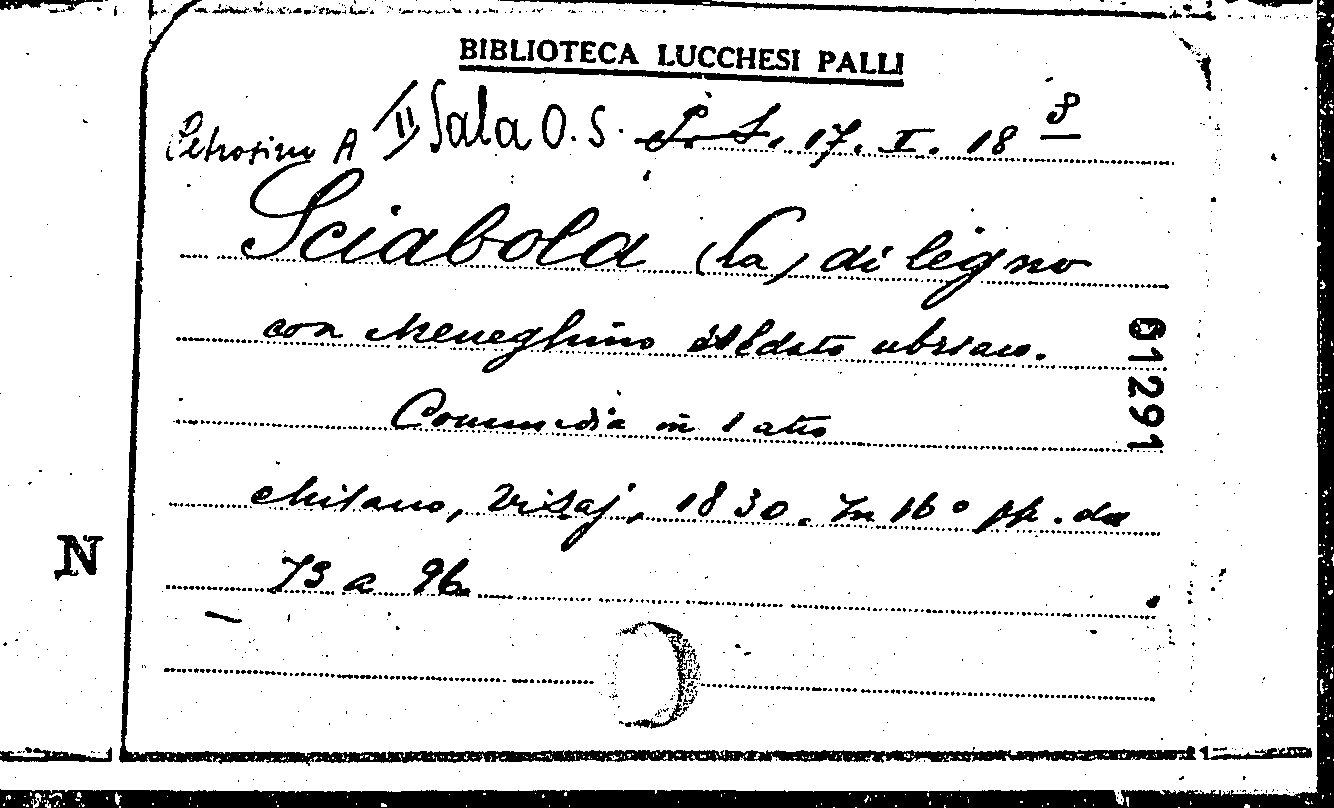 BIBLIOTECA LUCCHESI PALLI
Petrosino A II Sala O. S. P. S. 17. I. 18 8
Sciabola (La) di legno
con Meneghino soldato ubriaco.
Commedia in 1 atto
Milano, Visaj, 1830. In 16° pp. da
73 a 96.
61291
N